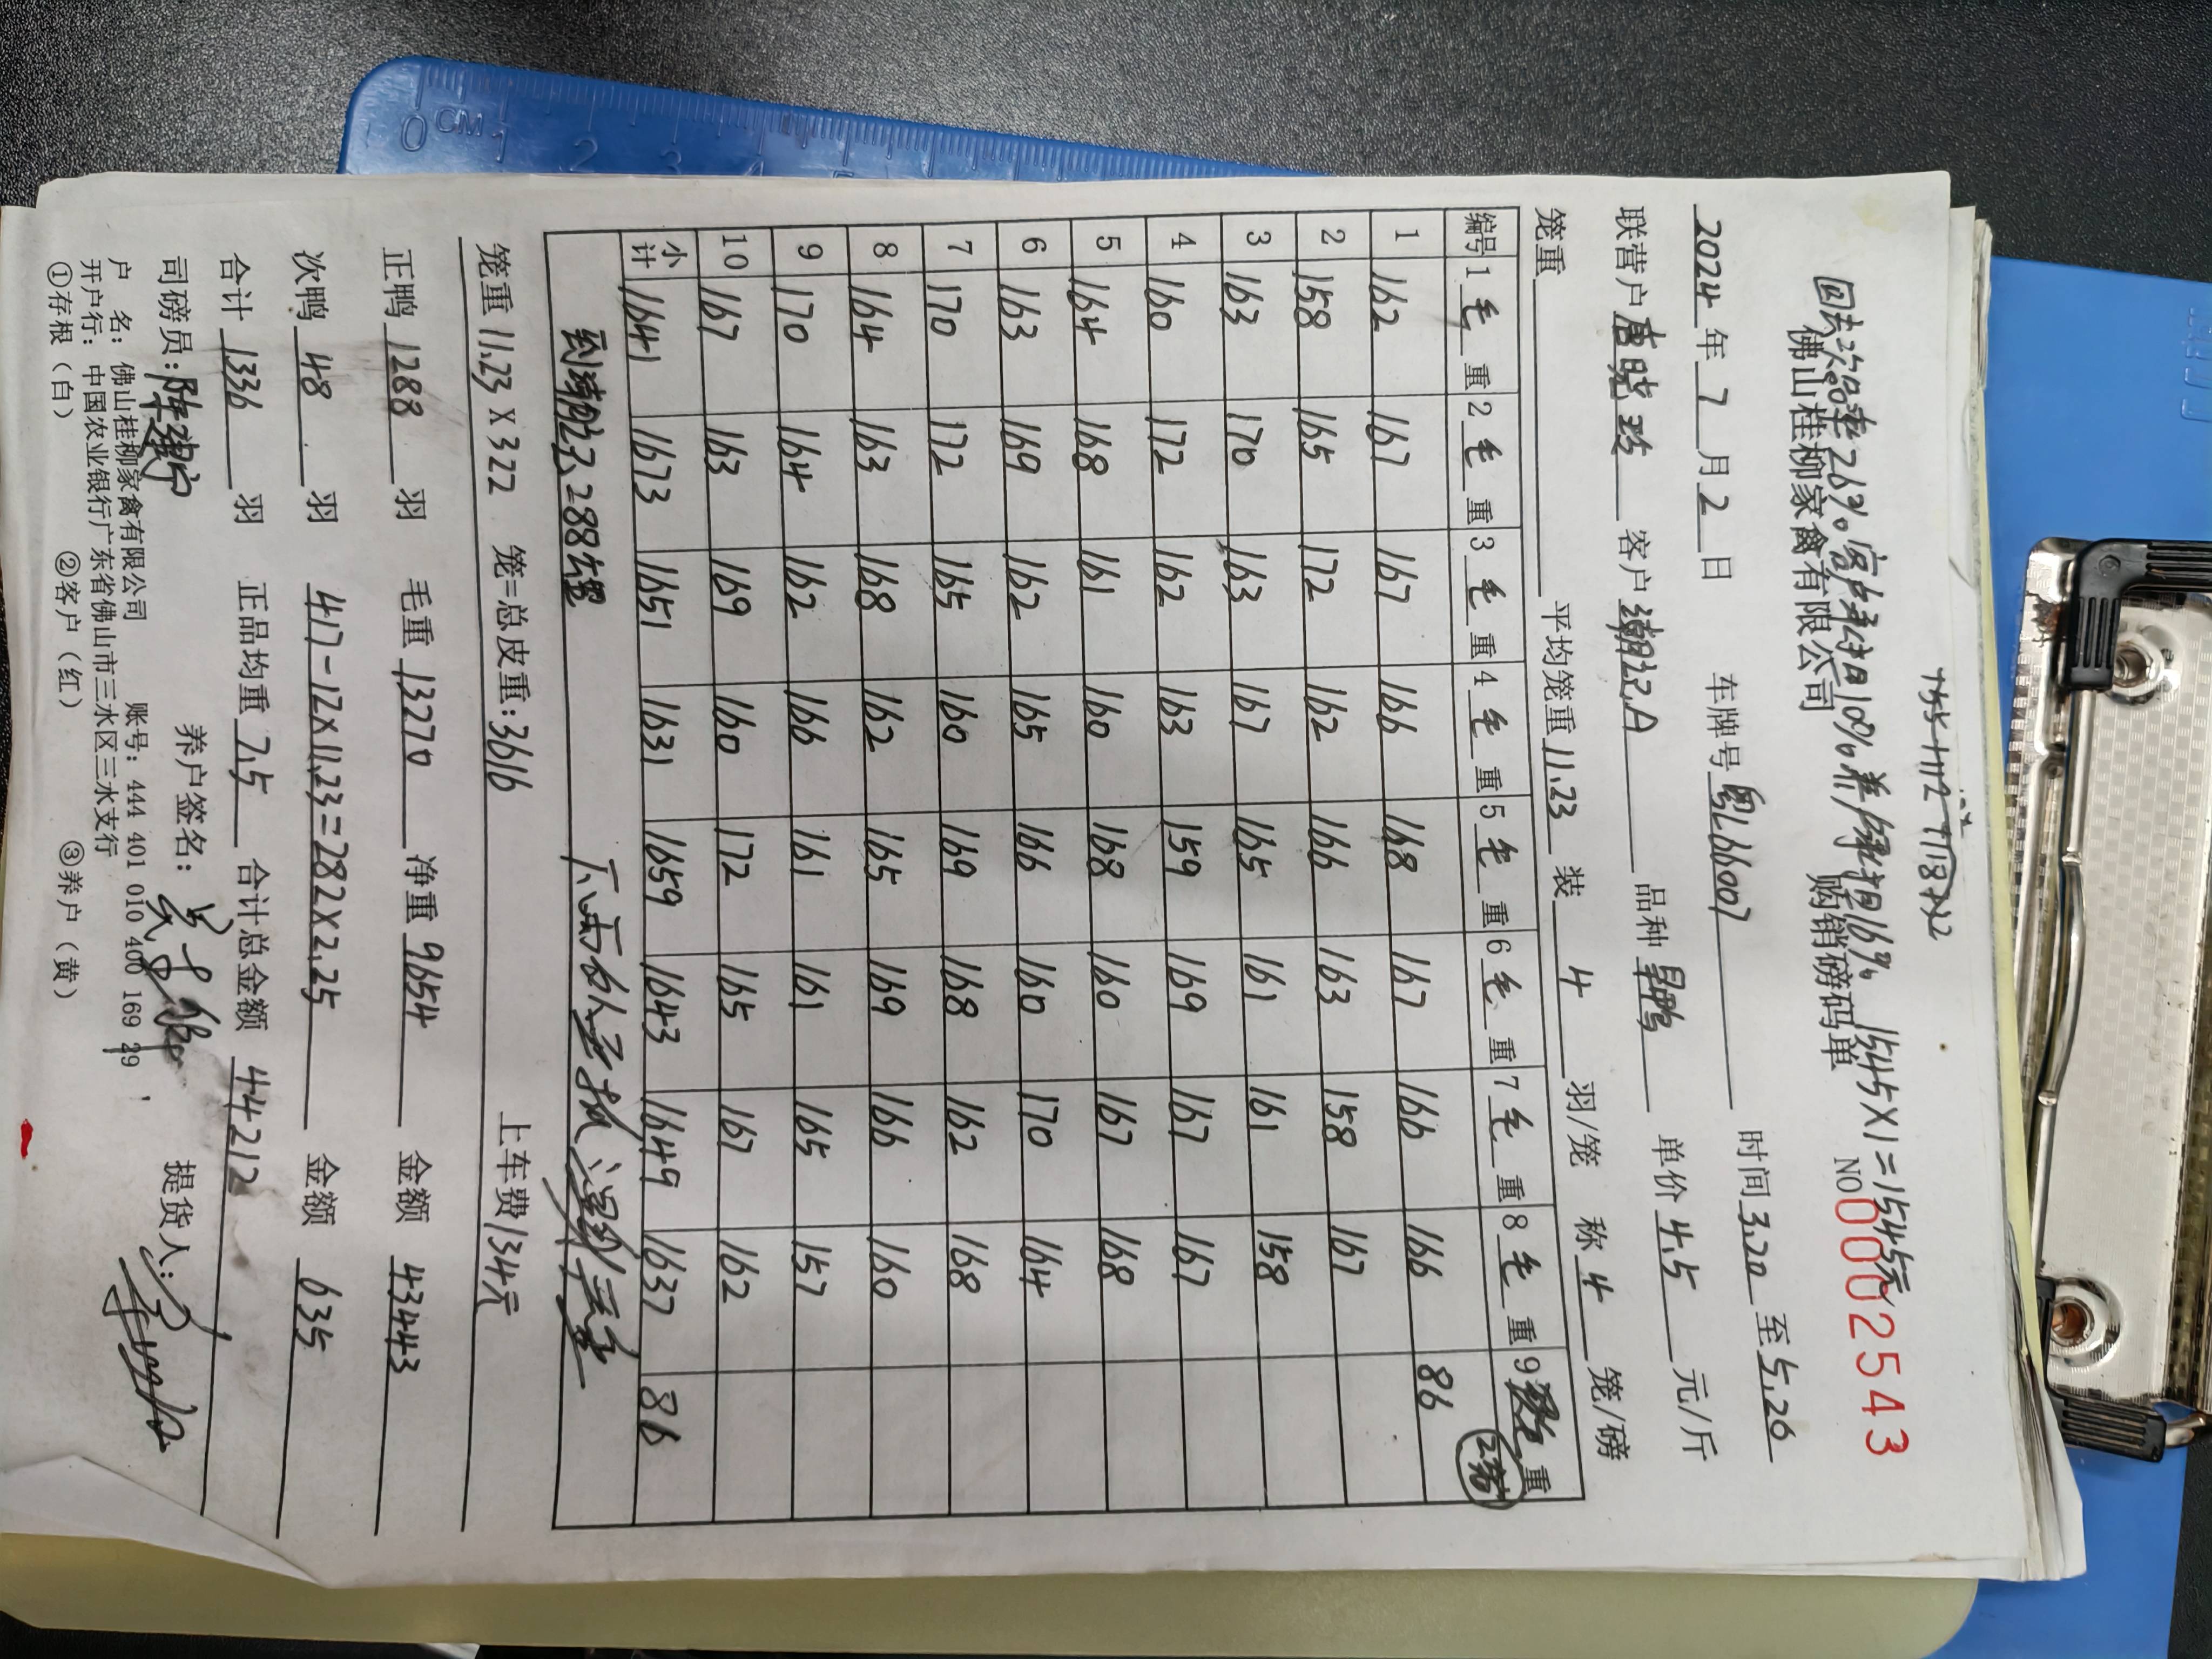 回去次品率26%.客户承担10%.养户承担16%. 1545X1=1545元
佛山桂柳家禽有限公司 购销磅码单 NO 0002543
2024年7月2日 车牌号 粤L66007 时间3.20至5.20
联营户 唐晓 客户 潮记A 品种 旱鸭 单价 4.5 元/斤
笼重 平均笼重 11.23 装 4 羽/笼 称 4 笼/磅
编号 1 毛重 2 毛重 3 毛重 4 毛重 5 毛重 6 毛重 7 毛重 8 毛重 9 重 2笼
1 162 167 167 166 168 167 166 166 86
2 158 165 172 162 166 163 158 167
3 163 170 163 167 165 161 161 158
4 160 172 162 163 159 169 167 167
5 164 168 161 160 168 160 167 168
6 163 169 162 165 166 160 170 164
7 170 172 165 160 169 168 162 168
8 164 163 168 162 165 169 166 160
9 170 164 162 166 161 161 165 157
10 167 163 169 160 172 165 167 162
小计 1641 1673 1651 1631 1659 1643 1649 1637 86
到潮记 288 下雨
笼重 11.23 X 322 笼=总皮重:3616 上车费134元
正鸭 1288 羽 毛重 13270 净重 9654 金额 43443
次鸭 48 羽 417-12X11.23=282X2.25 金额 635
合计 1336 羽 正品均重 7.5 合计总金额 44212
司磅员: 陈 养户签名: 提货人:
户 名: 佛山桂柳家禽有限公司 账号: 444 401 010 400 169 29
开户行: 中国农业银行广东省佛山市三水区三水支行
①存根(白) ②客户(红) ③养户(黄)
0 CM 1 2 3 4 5